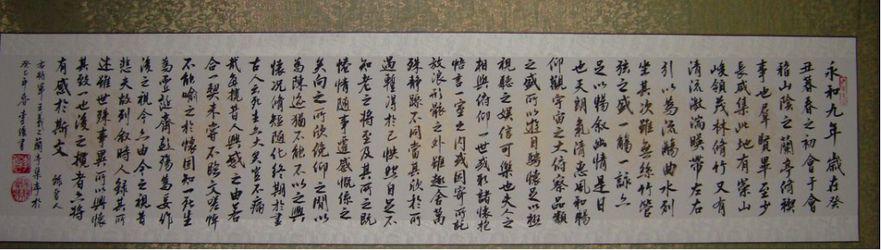 永和九年歲在癸
丑暮春之初會于會
稽山陰之蘭亭脩禊
事也羣賢畢至少
長咸集此地有崇山
峻領茂林脩竹又有
清流激湍暎帶左右
引以為流觴曲水列
坐其次雖無絲竹管
弦之盛一觴一詠亦
足以暢叙幽情是日
也天朗氣清惠風和暢
仰觀宇宙之大俯察品類
之盛所以遊目騁懷足以極
視聽之娛信可樂也夫人之
相與俯仰一世或取諸懷抱
悟言一室之内或因寄所託
放浪形骸之外雖趣舍萬
殊靜躁不同當其欣於所
遇蹔得於己怏然自足不
知老之將至及其所之既
惓情隨事遷感慨係之
矣向之所欣俛仰之閒以
為陳迹猶不能不以之興
懷況脩短隨化終期於盡
古人云死生亦大矣豈不痛
哉每攬昔人興感之由若
合一契未嘗不臨文嗟悼
不能喻之於懷固知一死生
為虛誕齊彭殤為妄作
後之視今亦由今之視昔
悲夫故列叙時人錄其所
述雖世殊事異所以興懷
其致一也後之攬者亦將
有感於斯文
右將軍王羲之蘭亭集序於
癸巳年 李 書